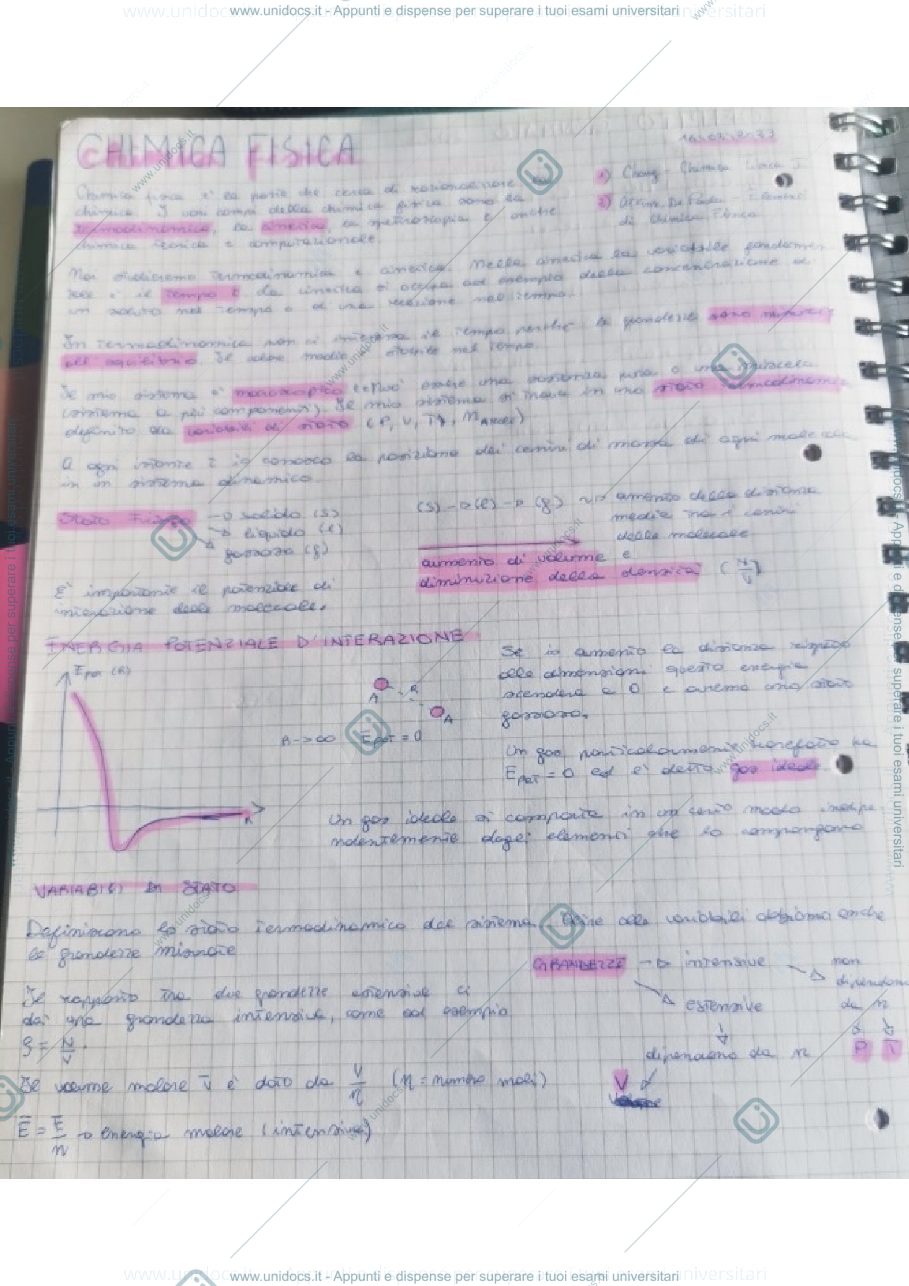 www.unidocs.it - Appunti e dispense per superare i tuoi esami universitari
CHIMICA FISICA
1) Chang - Chimica
2)
di Chimica Fisica
Chimica fisica e' la parte che cerca di razionalizzare la
chimica. I vari campi della chimica fisica sono la
termodinamica, la cinetica, la spettroscopia e anche
chimica teorica e computazionale.
Noi studieremo termodinamica e cinetica. Nella cinetica la variabile fondamen
tale e' il tempo e la cinetica si occupa ad esempio della concentrazione di
un soluto nel tempo o di una reazione nel tempo.
In termodinamica non ci interessa il tempo perché le grandezze sono misurate
all'equilibrio. Se sono medie nel tempo.
Se mio sistema e' macroscopico e puo' essere una sostanza pura o una miscela
(sistema a più componenti). Se mio sistema si trova in uno stato termodinamico
definito da variabili di stato (P, V, T,
A ogni istante io conosco la posizione dei centri di massa di ogni molecola
in un sistema dinamico.
Stato Fisico → solido (s)
→ liquido (l)
→ gassoso (g)
(s) → (l) → (g) aumento della distanza
media tra i centri
delle molecole
aumento di volume e
diminuzione della densità (N/V)
E' importante il potenziale di
interazione delle molecole.
ENERGIA POTENZIALE D'INTERAZIONE
E pot (R)
A R
A
R → ∞ E pot = 0
R
Se io aumento la distanza rispetto
alle dimensioni questa energia
scenderà a 0 e avremo uno stato
gassoso.
Un gas particolarmente rarefatto ha
E pot = 0 ed e' detto gas ideale.
Un gas ideale si comporta in un certo modo indipe
ndentemente dagli elementi che lo compongono
VARIABILI DI STATO
Definiscono lo stato termodinamico del sistema. Oltre alle variabili abbiamo anche
le grandezze misurate
GRANDEZZE → intensive → non
dipendono
da n
P T
→ estensive
↓
dipendono da n
V
Se rapporto tra due grandezze estensive ci
dai una grandezza intensiva, come ad esempio
ρ = N/V .
Se volume molare V̄ e' dato da V/n (n = numero moli)
Ē = E/n → energia molare (intensiva)
www.unidocs.it - Appunti e dispense per superare i tuoi esami universitari